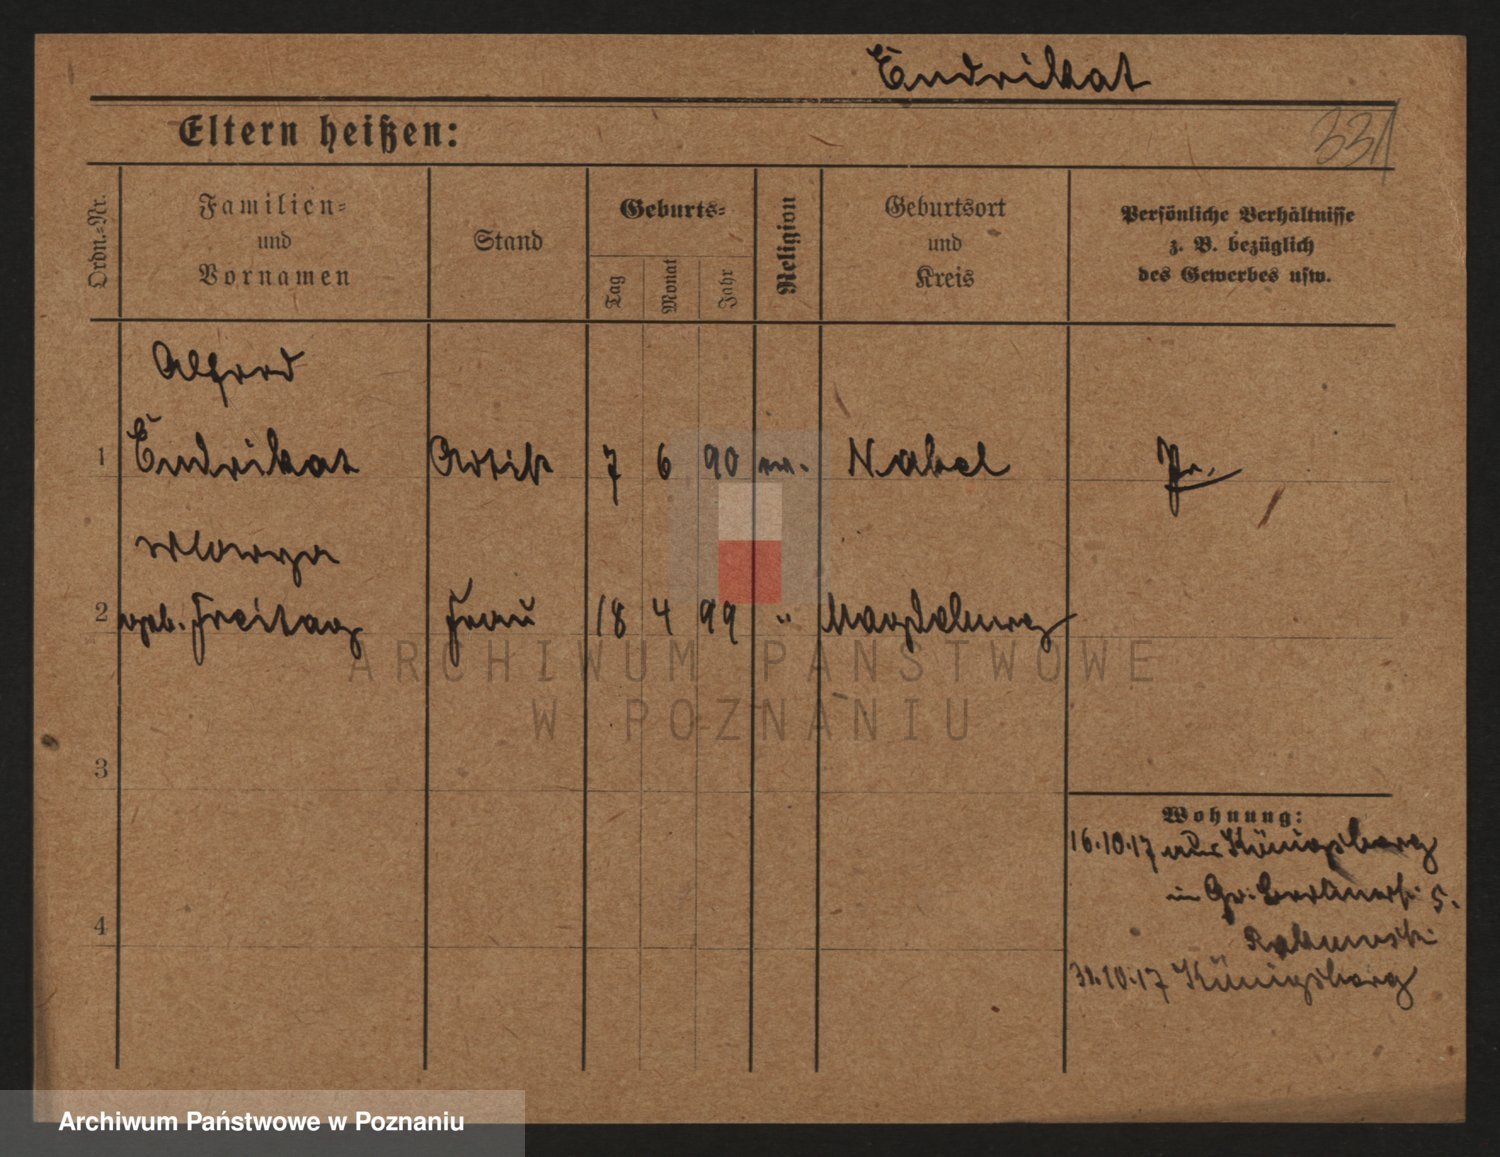 Endrikat
Eltern heißen:
331
Ordn.=Nr.
Familien=
und
Vornamen
Stand
Geburts=
Tag
Monat
Jahr
Religion
Geburtsort
und
Kreis
Persönliche Verhältnisse
z. B. bezüglich
des Gewerbes usw.
Alfred
1 Endrikat Artist 7 6 90 ev. Nakel Pr.
2 geb. Freitag Frau 18 4 99 " Magdeburg
3
4
Wohnung:
16.10.17 aus Königsberg
in Gr. Berlinerst. 5.
31.10.17 Königsberg
ARCHIWUM PAŃSTWOWE
W POZNANIU
Archiwum Państwowe w Poznaniu